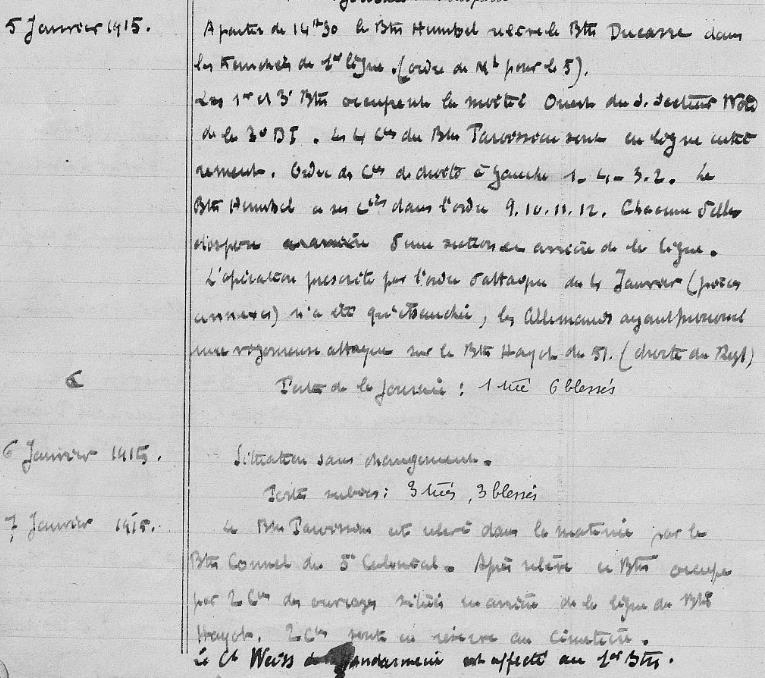 5 Janvier 1915. A partir de 14h30 le Bton Humbel relève le Bton Ducasse dans
les tranchées de 1ère ligne. (ordre de Mt pour le 5).
Les 1er et 3e Btons occupent la moitié Ouest du S. Secteur Nord
de la 3e DI. Les 4 Cies du Bton Paroissou sont en ligne entiè
rement. Ordre des Cies de droite à gauche 1-4-3.2. Le
Bton Humbel a ses Cies dans l'ordre 9.10.11.12. Chacune d'elles
dispose d'une section en arrière de la ligne.
L'opération prescrite par l'ordre d'attaque du 4 Janvier (pièces
annexes) n'a été qu'ébauchée, les Allemands ayant prononcé
une vigoureuse attaque sur le Bton Hayot du 51. (droite du Regt)
Perte de la journée : 1 tué 6 blessés
6 Janvier 1915. Situation sans changement.
Pertes subies : 3 tués, 3 blessés
7 Janvier 1915. Le Bton Paroissou est relevé dans la matinée par le
Bton Connel du 5e Colonial. Après relève ce Bton occupe
par 2 Cies des ouvrages situés en arrière de la ligne du Bton
Hayot. 2 Cies sont en réserve au cimetière.
Le Ct Weiss de Gendarmerie est affecté au 1er Bton.